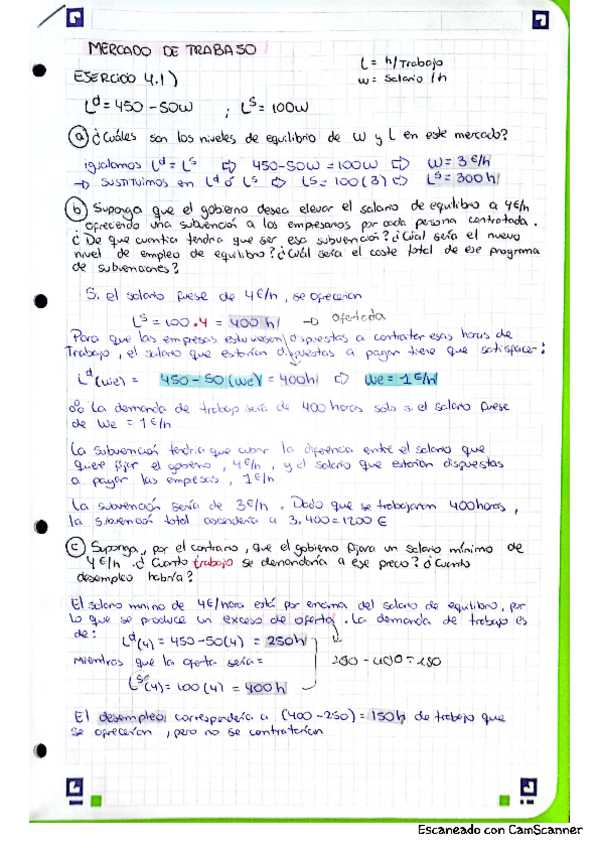 MERCADO DE TRABAJO
L = h/Trabajo
w = Salario /h
EJERCICIO 4.1)
L^d = 450 - 50W ; L^s = 100W
a) ¿Cuáles son los niveles de equilibrio de w y L en este mercado?
igualamos L^d = L^s ⇨ 450-50W = 100W ⇨ W = 3€/h
→ SUSTITUIMOS en L^d ó L^s ⇨ L^s = 100(3) ⇨ L^s = 300h
b) Suponga que el gobierno desea elevar el salario de equilibrio a 4€/h
ofreciendo una subvención a los empresarios por cada persona contratada.
¿De que cuantía tendría que ser esa subvención? ¿Cúal sería el nuevo
nivel de empleo de equilibro? ¿Cuál sería el coste total de ese programa
de subvenciones?
Si el salario fuese de 4€/h, se ofrecerían
L^s = 100.4 = 400 h → ofertada
Para que las empresas estuviesen dispuestas a contratar esas horas de
Trabajo, el salario que estarían dispuestas a pagar tiene que satisfacer:
L^d(we) = 450 - 50(we) = 400h ⇨ we = 1€/h
∴ La demanda de trabajo sería de 400 horas solo si el salario fuese
de We = 1€/h
La subvención tendría que cubrir la diferencia entre el salario que
quiere fijar el gobierno, 4€/h, y el salario que estarían dispuestas
a pagar las empresas, 1€/h
La subvención sería de 3€/h. Dado que se trabajarían 400 horas,
la subvención total ascendería a 3.400 = 1200 €
c) Suponga, por el contrario, que el gobierno fijara un salario mínimo de
4€/h. ¿Cuanto trabajo se demandaría a ese precio? ¿Cuanto
desempleo habría?
El salario mínimo de 4€/hora está por encima del salario de equilibrio, por
lo que se produce un exceso de oferta. La demanda de trabajo es
de: L^d(4) = 450-50(4) = 250h
mientras que la oferta sería =
L^s(4) = 100(4) = 400h
El desempleo correspondería a (400-250) = 150h de trabajo que
se ofrecerían, pero no se contratarían
Escaneado con CamScanner